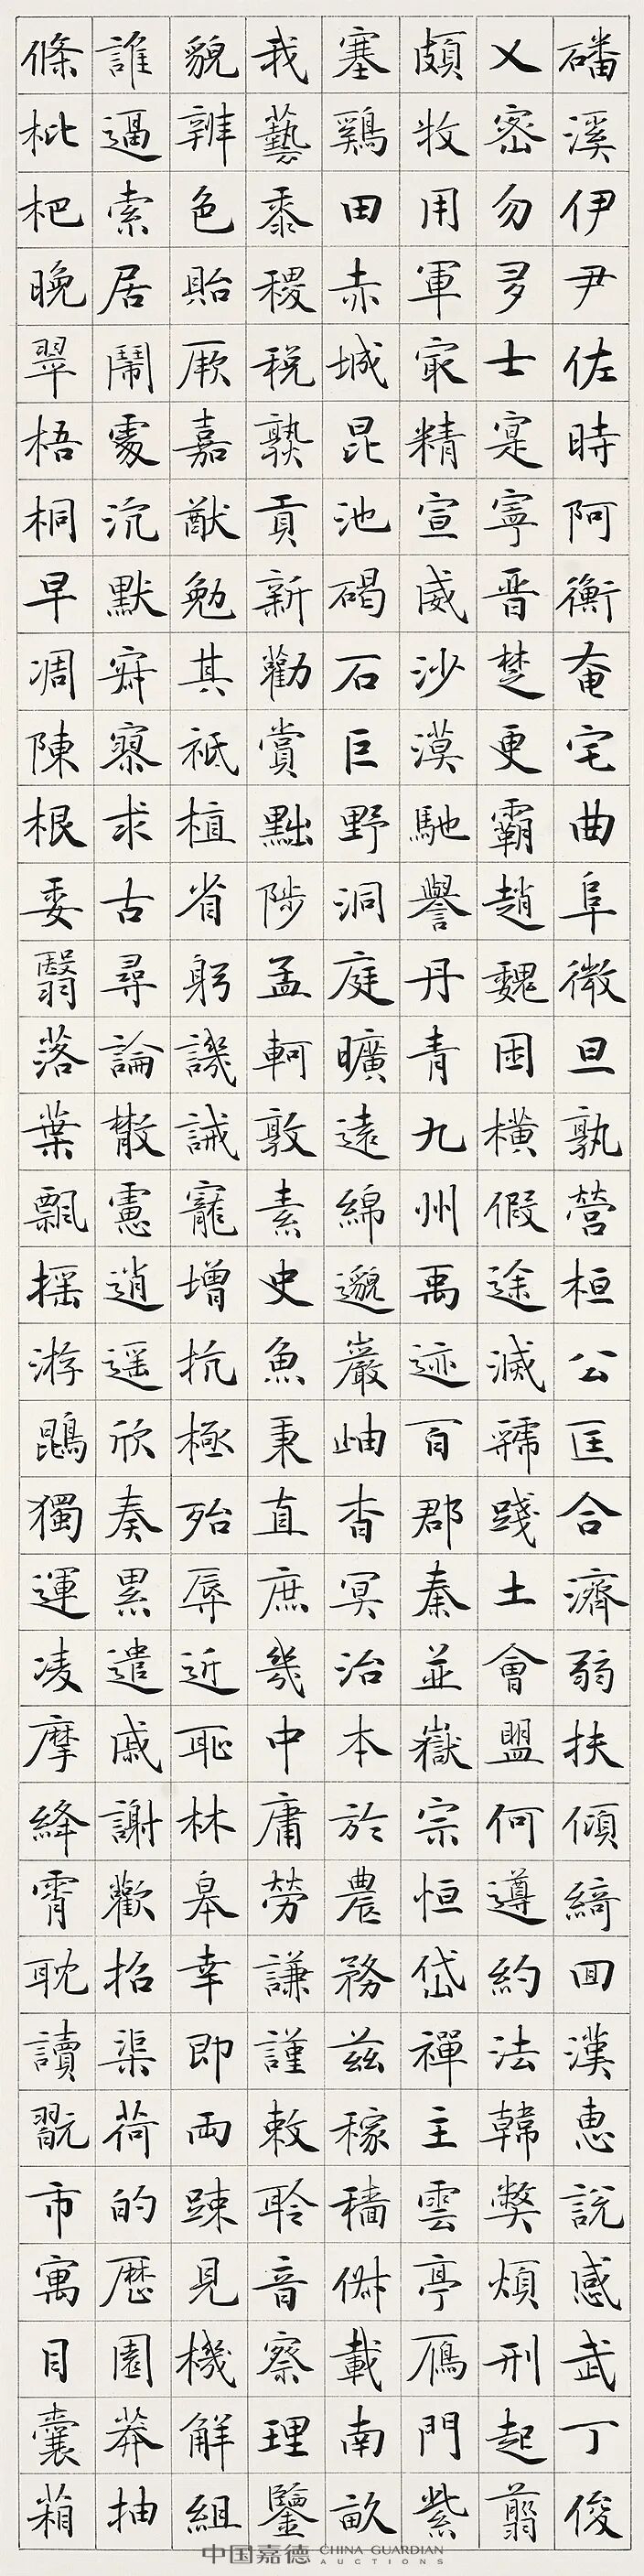 磻溪伊尹佐時阿衡奄宅曲阜微旦孰營桓公匡合濟弱扶傾綺回漢惠説感武丁俊
乂密勿多士寔寧晉楚更霸趙魏困橫假途滅虢踐土會盟何遵約法韓弊煩刑起翦
頗牧用軍最精宣威沙漠馳譽丹青九州禹迹百郡秦並嶽宗恒岱禪主雲亭鴈門紫
塞鷄田赤城昆池碣石巨野洞庭曠遠綿邈巖岫杳冥治本於農務兹稼穡俶載南畝
我藝黍稷税熟貢新勸賞黜陟孟軻敦素史魚秉直庶幾中庸勞謙謹敕聆音察理鑒
貌辨色貽厥嘉猷勉其祗植省躬譏誡寵增抗極殆辱近恥林皋幸即兩疎見機解組
誰逼索居鬧處沉默寂寥求古尋論散慮逍遥欣奏累遣戚謝歡招渠荷的歷園莽抽
條枇杷晚翠梧桐早凋陳根委翳落葉飄摇游鵾獨運凌摩絳霄耽讀翫市寓目囊箱
中国嘉德 CHINA GUARDIAN
AUCTIONS